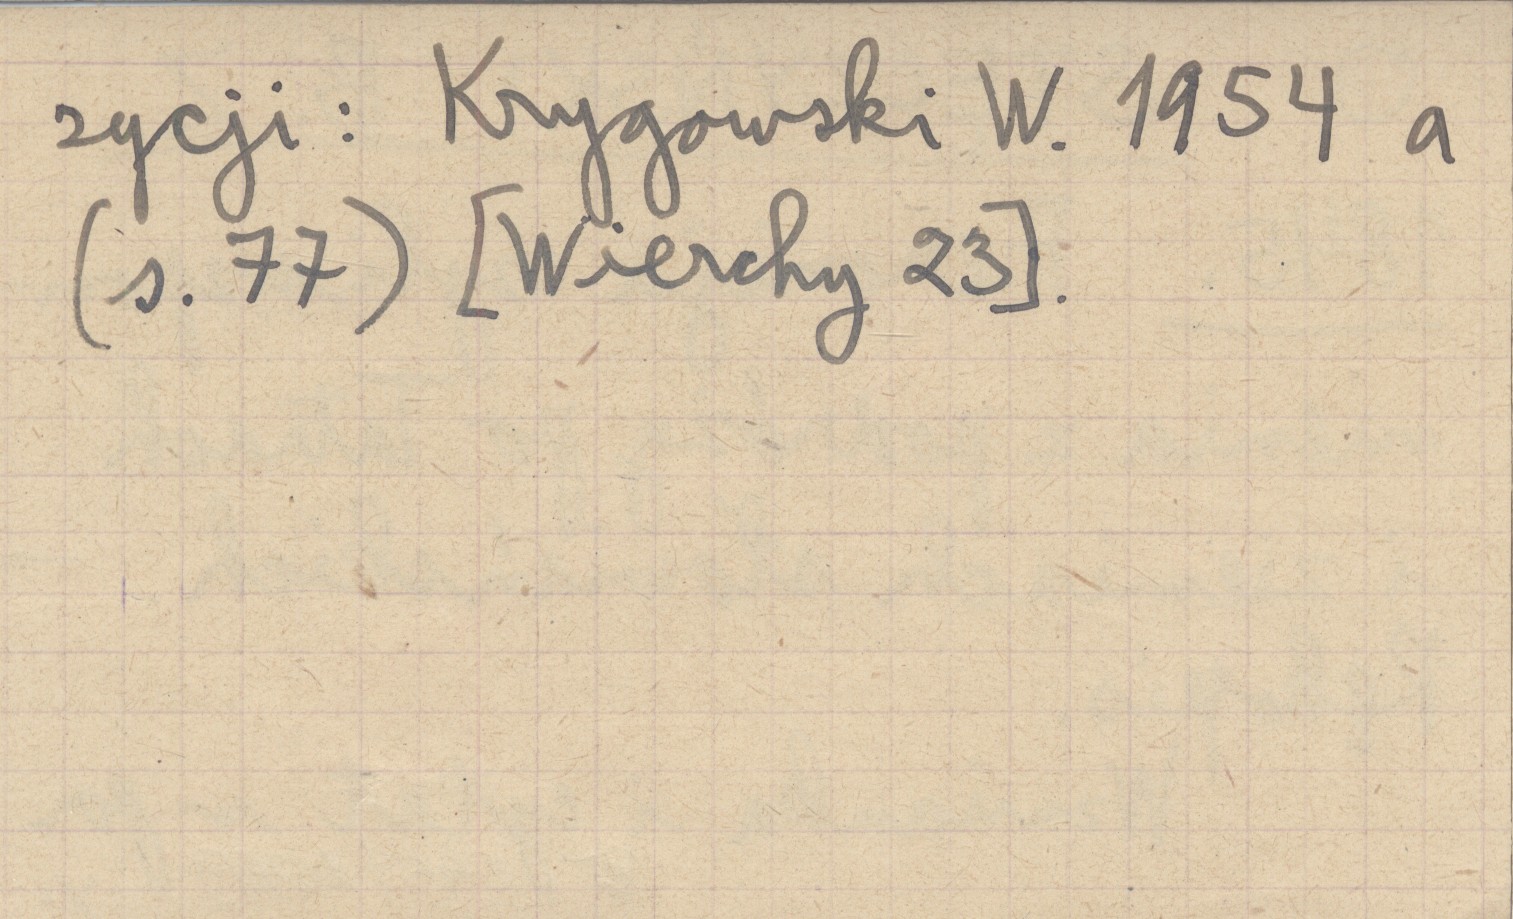 zycji: Krygowski W. 1954 a
(s. 77) [Wierchy 23].